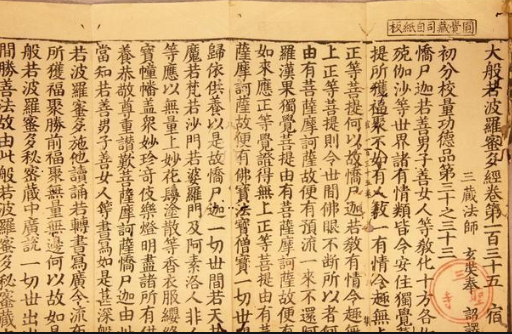 圓覺藏司自紙板
大般若波羅蜜多經卷第一百三十五 宿
三藏法師 玄奘奉 詔譯
初分校量功德品第三十之三十三
憍尸迦若善男子善女人等教化十方各
殑伽沙等世界諸有情類皆令安住獨覺菩
提所獲福聚不如有人教一有情令趣無上
正等菩提何以故憍尸迦若教有情令趣無
上正等菩提則令世間佛眼不斷所以者何
由有菩薩摩訶薩故便有預流一來不還阿
羅漢果獨覺菩提由有菩薩摩訶薩故便有
如來應正等覺證得無上正等菩提由有菩
薩摩訶薩故便有佛寶法寶僧寶一切世間
歸依供養以是故憍尸迦一切世間若天若
魔若梵若沙門若婆羅門及阿素洛人非人
等應以無量上妙花鬘塗散等香衣服纓絡
寶幢幡蓋衆妙珍奇伎樂燈明盡諸所有供
養恭敬尊重讚歎菩薩摩訶薩憍尸迦由此
當知若善男子善女人等書寫如是甚深般
若波羅蜜多施他讀誦若轉書寫廣令流布
所獲福聚勝前福聚無量無邊何以故如是
般若波羅蜜多秘密藏中廣說一切世出世
間勝善法故由此般若波羅蜜多秘密藏中
三聖寺